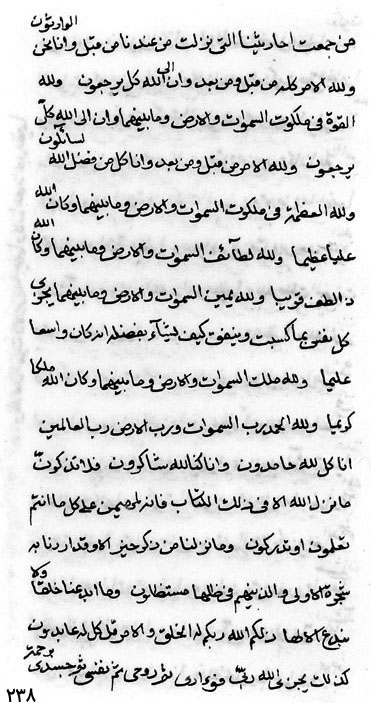 الوارثون
من جمعت احاديثنا التي نزلت من عندنا من قبل وانا نحن
ولله الامر كله من قبل ومن بعد وان الى الله كل يرجعون ولله
القوة في ملكوت السموات والارض وما بينهما وان الى الله كل
يرجعون ولله الامر من قبل ومن بعد وانا كل من فضل الله لسائلون
ولله العظمة في ملكوت السموات والارض وما بينهما وكان الله
عليا عظيما ولله لطائف السموات والارض وما بينهما وكان الله
ذا لطف قريبا ولله يمين السموات والارض وما بينهما يجزي
كل نفس بما كسبت وينفق كيف يشآء بفضله انه كان واسعا
عليما ولله ملك السموات والارض وما بينهما وكان الله ملكا
كريما ولله الحمد رب السموات ورب الارض رب العالمين
انا كل لله حامدون وانا كنا لله شاكرون فلا تذكرون
ما نزل الله الا في ذلك الكتاب فانه لمهيمن على كل ما انتم
تعلمون او تدركون وما نزلنا من ذكر خير الا وقد اردنا به
شجرة الاولى والذينهم في ظلها مستظلون وما ابدعنا خلقا ولا
نبدع الا لها ذلكم الله ربكم له الخلق والامر قل كل له عابدون
كذلك يجزي الله ربي فؤادي ثم روحي ثم نفسي ثم جسدي برحمته
٢٣٨